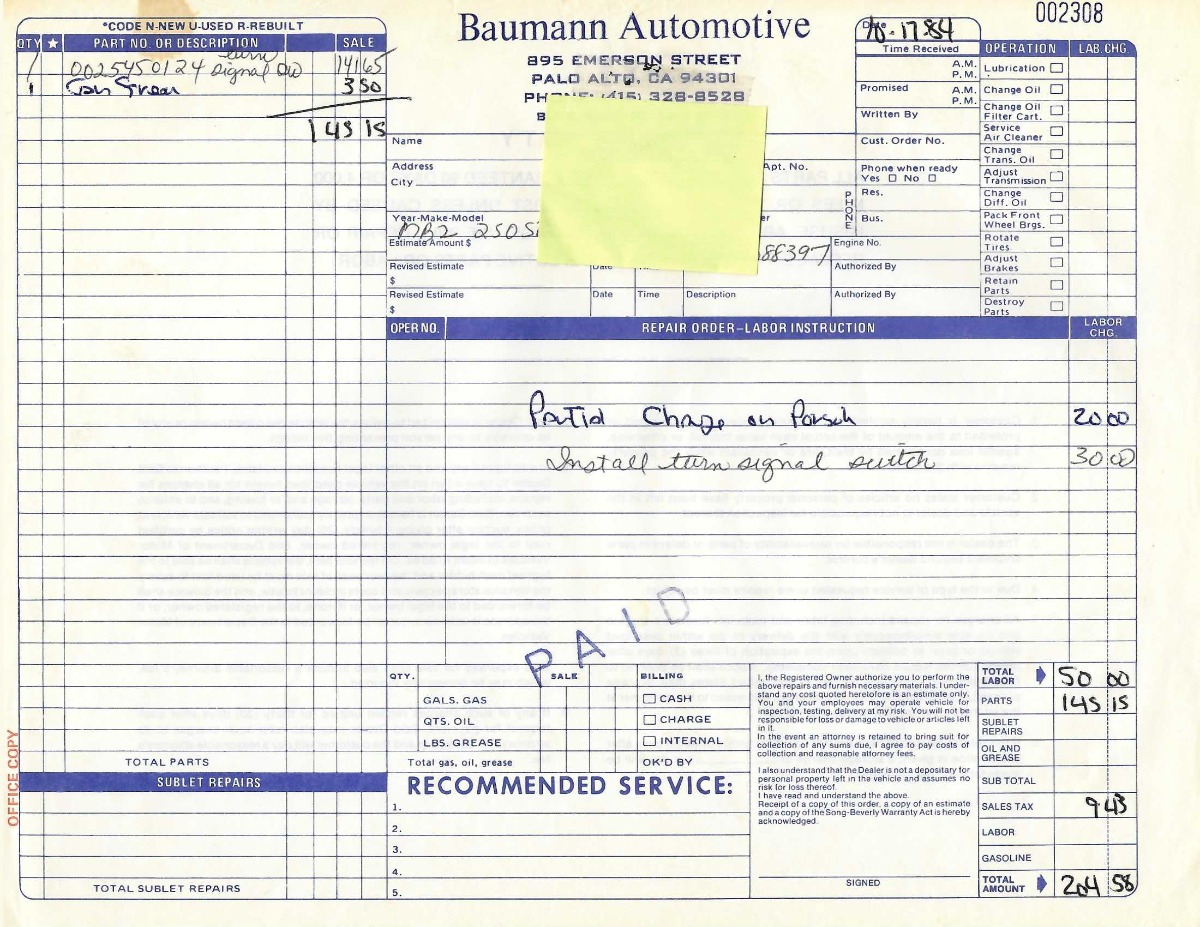 002308
Baumann Automotive
895 EMERSON STREET
PALO ALTO, CA 94301
PHONE: (415) 328-8528
Date 10-17-84
Time Received
A.M.
P.M.
Promised A.M.
P.M.
Written By
Cust. Order No.
Phone when ready
Yes No
PHONE
Res.
Bus.
*CODE N-NEW U-USED R-REBUILT
QTY ★ PART NO. OR DESCRIPTION SALE
1 0025450124 turn signal 141 65
1 3 50
145 15
Name
Address Apt. No.
City
Year-Make-Model
MBZ 250S
88397
Engine No.
Estimate Amount $
Revised Estimate Date Authorized By
$
Revised Estimate Date Time Description Authorized By
$
OPERATION LAB. CHG.
Lubrication
Change Oil
Change Oil
Filter Cart.
Service
Air Cleaner
Change
Trans. Oil
Adjust
Transmission
Change
Diff. Oil
Pack Front
Wheel Brgs.
Rotate
Tires
Adjust
Brakes
Retain
Parts
Destroy
Parts
OPER NO. REPAIR ORDER–LABOR INSTRUCTION LABOR CHG.
Partial Charge on Porsch 20 00
Install turn signal switch 30 00
PAID
QTY. SALE BILLING
GALS. GAS CASH
QTS. OIL CHARGE
LBS. GREASE INTERNAL
Total gas, oil, grease OK'D BY
TOTAL PARTS
SUBLET REPAIRS
TOTAL SUBLET REPAIRS
OFFICE COPY
RECOMMENDED SERVICE:
1.
2.
3.
4.
5.
I, the Registered Owner authorize you to perform the
above repairs and furnish necessary materials. I under-
stand any cost quoted heretofore is an estimate only.
You and your employees may operate vehicle for
inspection, testing, delivery at my risk. You will not be
responsible for loss or damage to vehicle or articles left
in it.
In the event an attorney is retained to bring suit for
collection of any sums due, I agree to pay costs of
collection and reasonable attorney fees.
I also understand that the Dealer is not a depositary for
personal property left in the vehicle and assumes no
risk for loss thereof.
I have read and understand the above.
Receipt of a copy of this order, a copy of an estimate
and a copy of the Song-Beverly Warranty Act is hereby
acknowledged.
SIGNED
TOTAL LABOR 50 00
PARTS 145 15
SUBLET REPAIRS
OIL AND GREASE
SUB TOTAL
SALES TAX 9 43
LABOR
GASOLINE
TOTAL AMOUNT 204 58